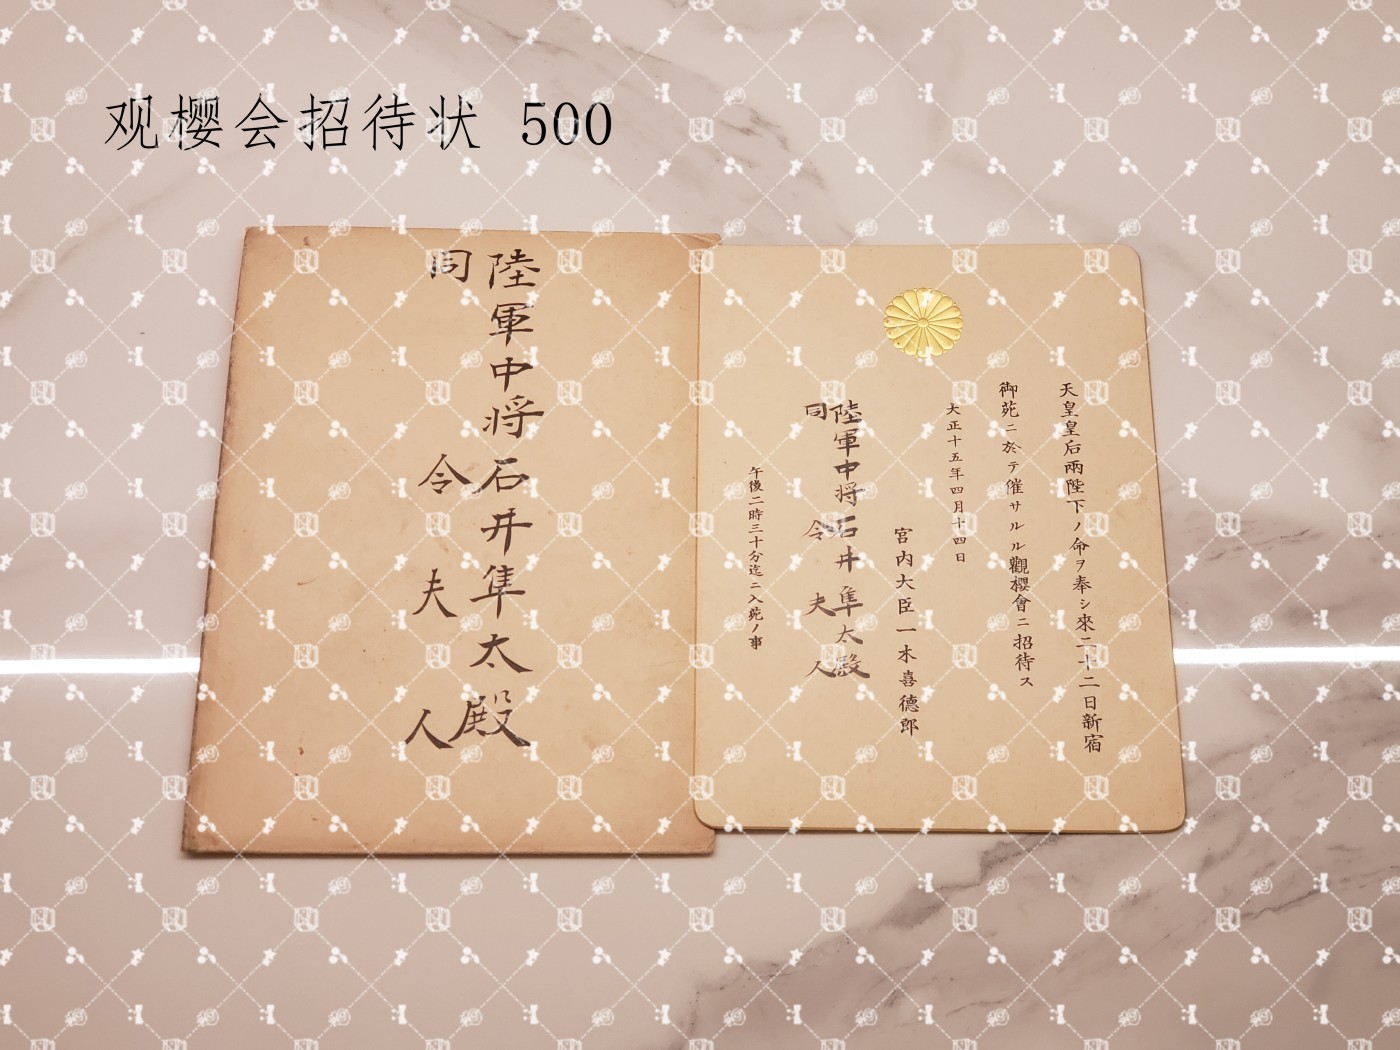 观樱会招待状 500
陸軍中将石井隼太殿
同令夫人
天皇皇后兩陛下ノ命ヲ奉シ來二十二日新宿
御苑ニ於テ催サルル觀櫻會ニ招待ス
大正十五年四月十四日
宮内大臣一木喜德郎
陸軍中将石井隼太殿
同令夫人
午後二時三十分迄ニ入苑ノ事